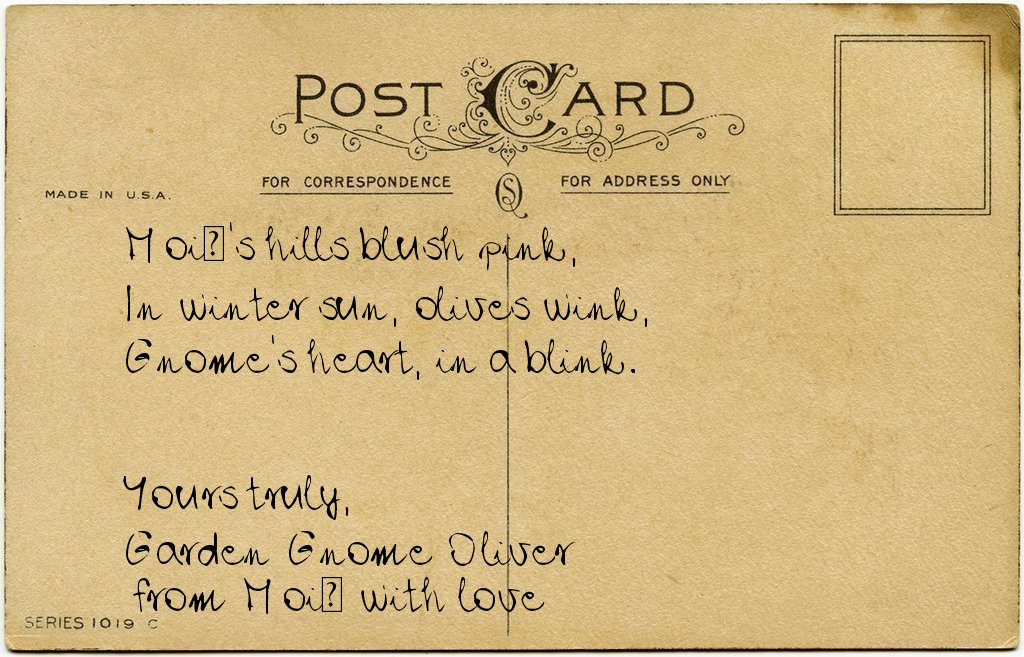 POST CARD
FOR CORRESPONDENCE
FOR ADDRESS ONLY
MADE IN U.S.A.
Moi�'s hills blush pink,
In winter sun, olives wink,
Gnome's heart, in a blink.
Yours truly,
Garden Gnome Oliver
from Moi� with love
SERIES 1019 C